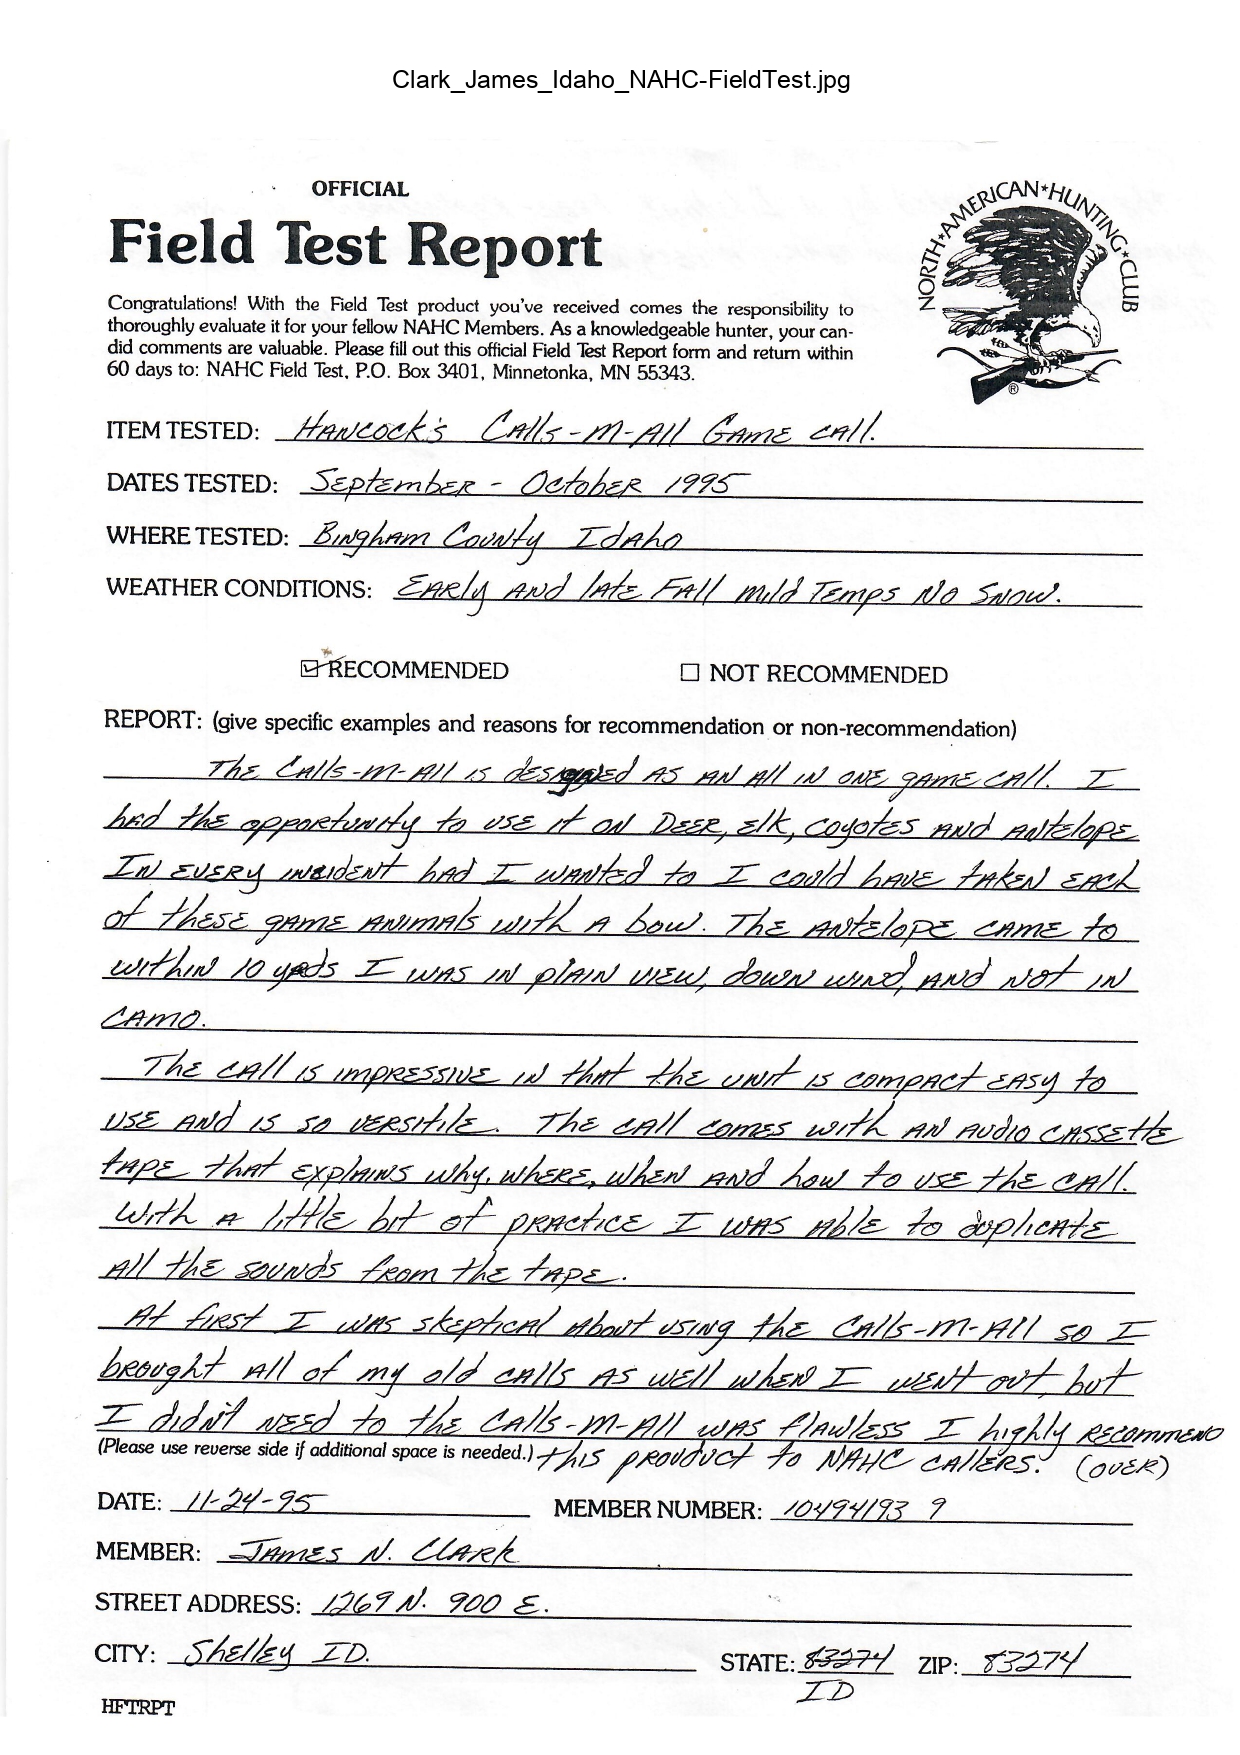 Clark_James_Idaho_NAHC-FieldTest.jpg
OFFICIAL
Field Test Report
NORTH★AMERICAN★HUNTING★CLUB
®
Congratulations! With the Field Test product you've received comes the responsibility to
thoroughly evaluate it for your fellow NAHC Members. As a knowledgeable hunter, your can-
did comments are valuable. Please fill out this official Field Test Report form and return within
60 days to: NAHC Field Test, P.O. Box 3401, Minnetonka, MN 55343.
ITEM TESTED: Hancock's Calls-M-All Game call.
DATES TESTED: September - October 1995
WHERE TESTED: Bingham County Idaho
WEATHER CONDITIONS: Early and late Fall mild Temps No Snow.
☑ RECOMMENDED ☐ NOT RECOMMENDED
REPORT: (give specific examples and reasons for recommendation or non-recommendation)
The Calls-M-All is designed as an all in one game call. I
had the opportunity to use it on Deer, elk, coyotes and antelope
In every incident had I wanted to I could have taken each
of these game animals with a bow. The antelope came to
within 10 yards I was in plain view, down wind, and not in
camo.
The call is impressive in that the unit is compact easy to
use and is so versitile. The call comes with an audio cassette
tape that explains why, where, when and how to use the call.
With a little bit of practice I was able to duplicate
all the sounds from the tape.
At first I was skeptical about using the Calls-M-All so I
brought all of my old calls as well when I went out, but
I didn't need to the Calls-M-All was flawless I highly recommend
(Please use reverse side if additional space is needed.) this prouduct to NAHC callers. (over)
DATE: 11-24-95 MEMBER NUMBER: 10494193 9
MEMBER: James N. Clark
STREET ADDRESS: 1269 N. 900 E.
CITY: Shelley ID. STATE: 83274 ZIP: 83274
ID
HFTRPT